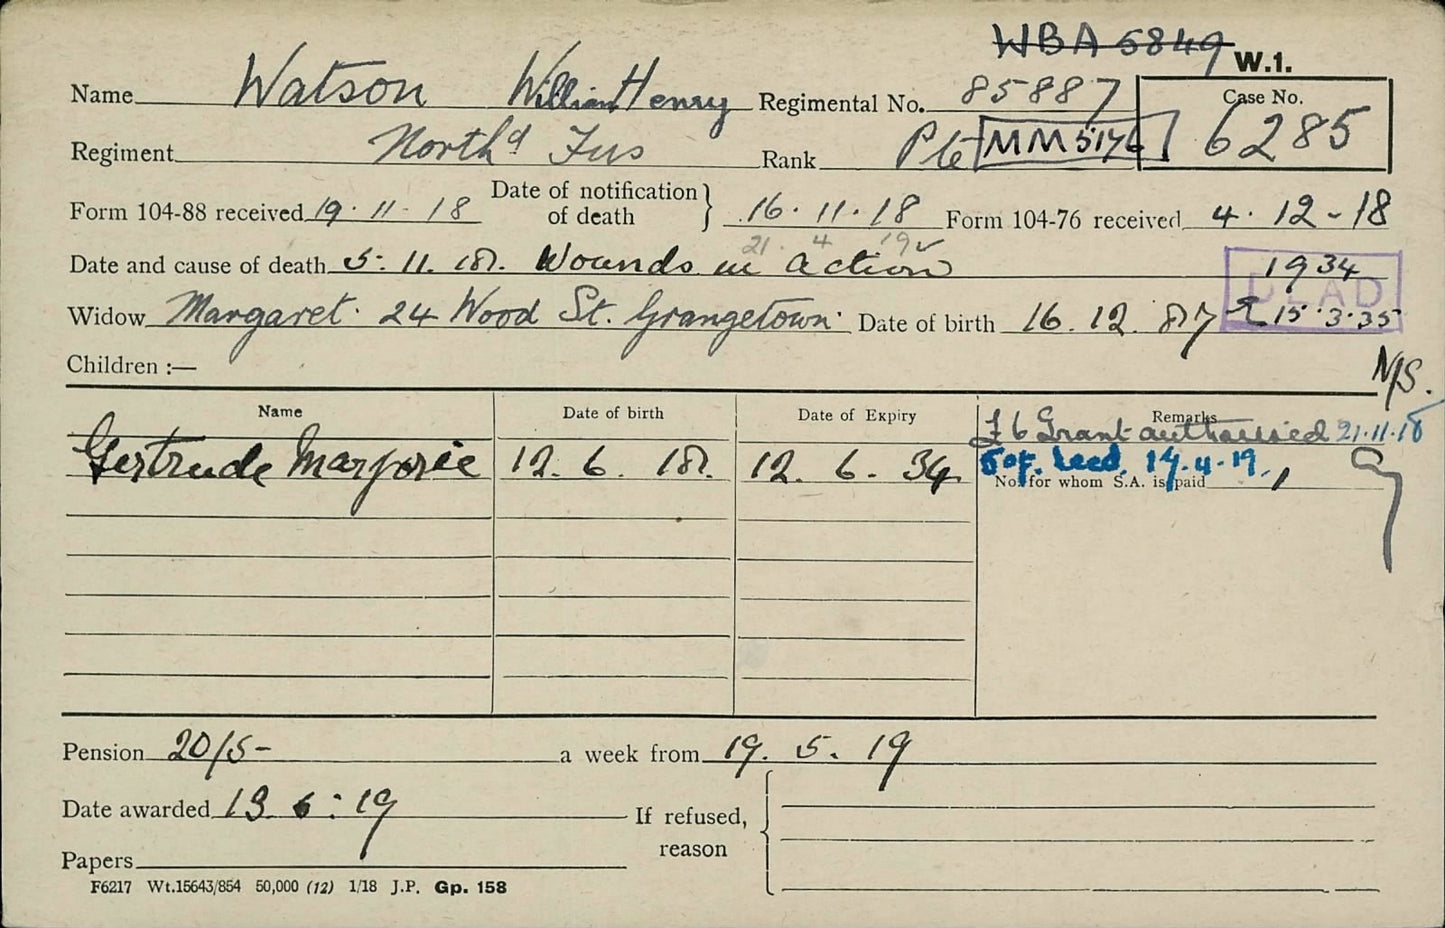 WBA 5849
W.1.
Name Watson William Henry Regimental No. 85887 Case No. 6285
Regiment Northd Fus Rank Pte MM5176
Form 104-88 received 19.11.18 Date of notification of death } 16.11.18 Form 104-76 received 4.12-18
21. 4 19
Date and cause of death 5.11.18. Wounds in action 1934
DEAD
Widow Margaret. 24 Wood St. Grangetown. Date of birth 16.12.87 15.3.35
Children :— N/S.
Name Date of birth Date of Expiry Remarks
£6 Grant authorised 21.11.18
Gertrude Marjorie 12.6.18. 12.6.34.
14.4.19.
No. for whom S.A. is paid 1
Pension 20/5- a week from 19.5.19
Date awarded 13.6.19 If refused, reason
Papers
F6217 Wt.15643/854 50,000 (12) 1/18 J.P. Gp. 158